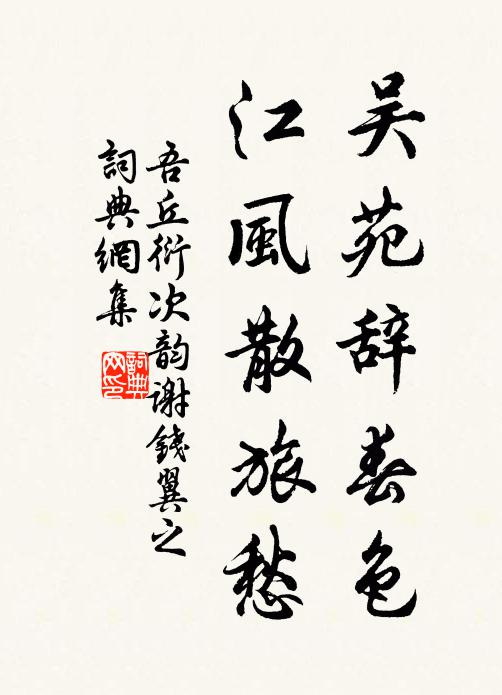 吴苑辞春色
江風散旅愁
吾丘衍次韵谢錢翼之
詞典網集
詞典网印